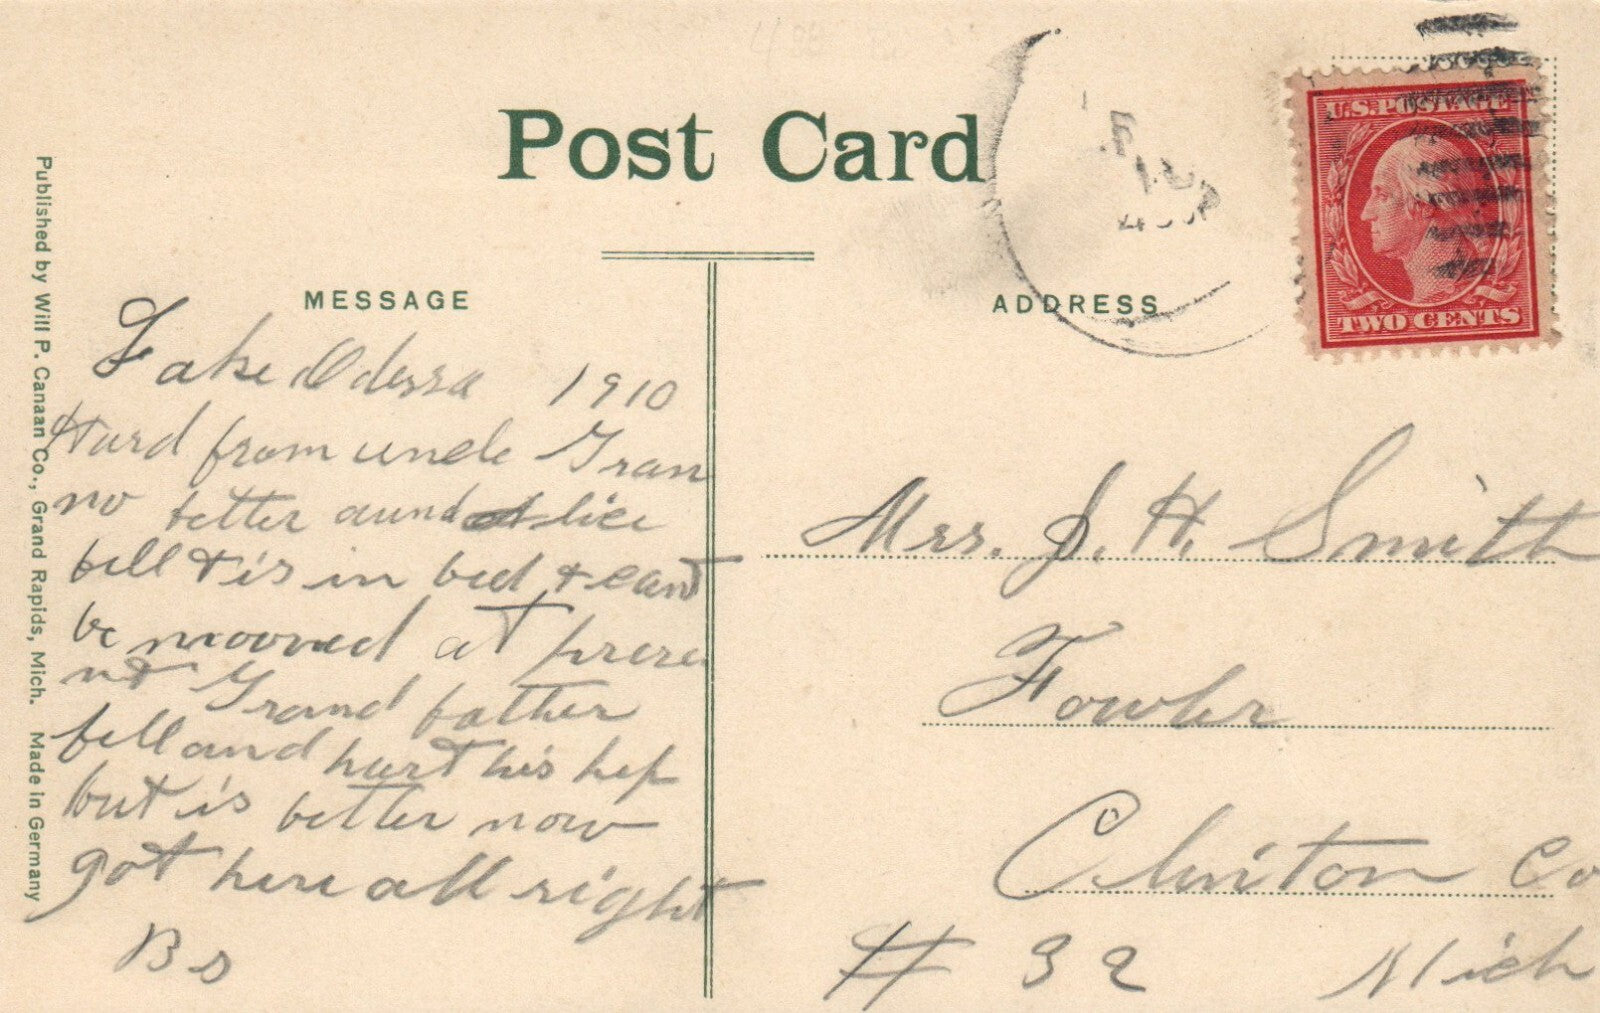 Post Card
U.S. POSTAGE
TWO CENTS
Published by Will P. Canaan Co., Grand Rapids, Mich. Made in Germany
MESSAGE
Lake Odessa 1910
Hurd from uncle Gran
no better aund Alice
fell & is in bed & cant
be mooved at prese
nt Grand father
fell and hurt his hip
but is better now
got here all right
B S
ADDRESS
Mrs. J. H. Smith
Fowler
Clinton Co
# 32 Mich